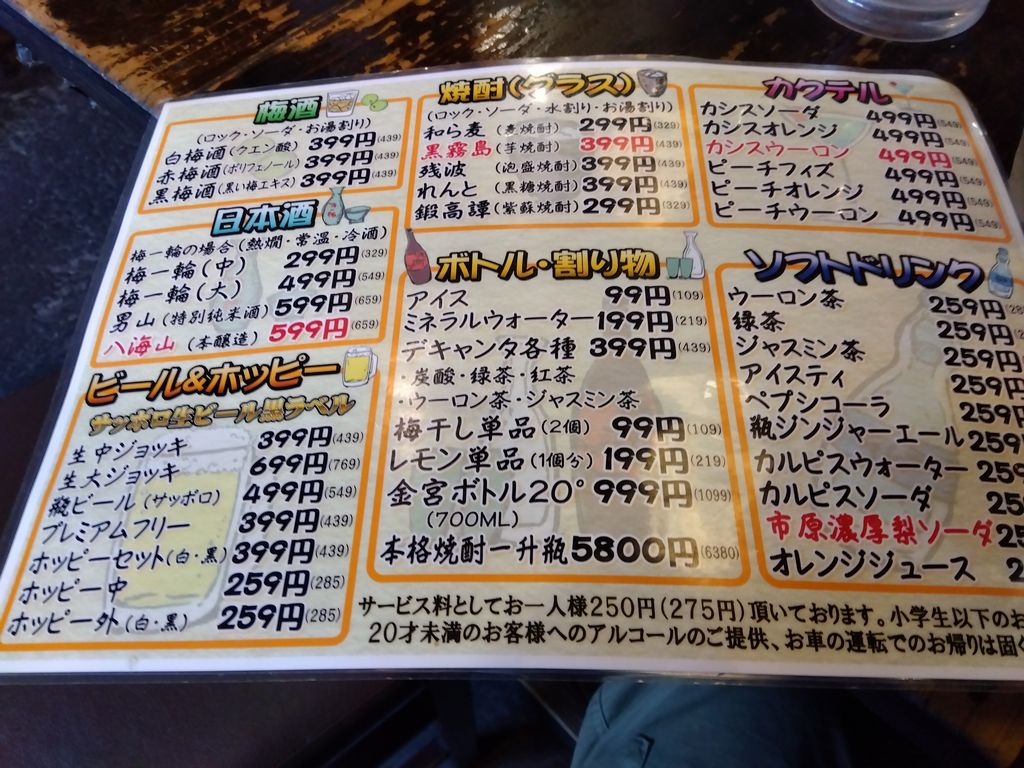 梅酒
(ロック・ソーダ・お湯割り)
白梅酒(クエン酸) 399円(439)
赤梅酒(ポリフェノール) 399円(439)
黒梅酒(黒い梅エキス) 399円(439)
日本酒
梅一輪の場合(熱燗・常温・冷酒)
梅一輪(中) 299円(329)
梅一輪(大) 499円(549)
男山(特別純米酒) 599円(659)
八海山(本醸造) 599円(659)
ビール&ホッピー
サッポロ生ビール黒ラベル
生中ジョッキ 399円(439)
生大ジョッキ 699円(769)
瓶ビール(サッポロ) 499円(549)
プレミアムフリー 399円(439)
ホッピーセット(白・黒) 399円(439)
ホッピー中 259円(285)
ホッピー外(白・黒) 259円(285)
焼酎(グラス)
(ロック・ソーダ・水割り・お湯割り)
和ら麦(麦焼酎) 299円(329)
黒霧島(芋焼酎) 399円(439)
残波(泡盛焼酎) 399円(439)
れんと(黒糖焼酎) 399円(439)
鍛高譚(紫蘇焼酎) 299円(329)
ボトル・割り物
アイス 99円(109)
ミネラルウォーター 199円(219)
デキャンタ各種 399円(439)
・炭酸・緑茶・紅茶
・ウーロン茶・ジャスミン茶
梅干し単品(2個) 99円(109)
レモン単品(1個分) 199円(219)
金宮ボトル20° 999円(1099)
(700ML)
本格焼酎一升瓶 5800円(6380)
カクテル
カシスソーダ 499円(549)
カシスオレンジ 499円(549)
カシスウーロン 499円(549)
ピーチフィズ 499円(549)
ピーチオレンジ 499円(549)
ピーチウーロン 499円(549)
ソフトドリンク
ウーロン茶 259円(28
緑茶 259円(2
ジャスミン茶 259円(
アイスティ 259円(
ペプシコーラ 259円
瓶ジンジャーエール 259円
カルピスウォーター 259
カルピスソーダ 25
市原濃厚梨ソーダ 25
オレンジジュース 2
サービス料としてお一人様250円(275円)頂いております。小学生以下のお
20才未満のお客様へのアルコールのご提供、お車の運転でのお帰りは固く